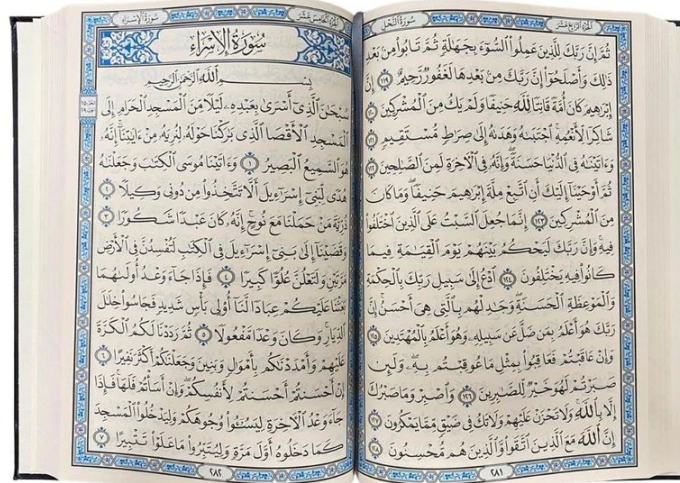 الجزء الرابع عشر
سورة النحل
ثُمَّ إِنَّ رَبَّكَ لِلَّذِينَ عَمِلُوا۟ ٱلسُّوٓءَ بِجَهَـٰلَةٍ ثُمَّ تَابُوا۟ مِنۢ بَعْدِ
ذَٰلِكَ وَأَصْلَحُوٓا۟ إِنَّ رَبَّكَ مِنۢ بَعْدِهَا لَغَفُورٌ رَّحِيمٌ ١١٩ إِنَّ
إِبْرَٰهِيمَ كَانَ أُمَّةً قَانِتًا لِّلَّهِ حَنِيفًا وَلَمْ يَكُ مِنَ ٱلْمُشْرِكِينَ ١٢٠
شَاكِرًا لِّأَنْعُمِهِ ٱجْتَبَىٰهُ وَهَدَىٰهُ إِلَىٰ صِرَٰطٍ مُّسْتَقِيمٍ ١٢١
وَءَاتَيْنَـٰهُ فِى ٱلدُّنْيَا حَسَنَةً وَإِنَّهُۥ فِى ٱلْـَٔاخِرَةِ لَمِنَ ٱلصَّـٰلِحِينَ ١٢٢
ثُمَّ أَوْحَيْنَآ إِلَيْكَ أَنِ ٱتَّبِعْ مِلَّةَ إِبْرَٰهِيمَ حَنِيفًا وَمَا كَانَ
مِنَ ٱلْمُشْرِكِينَ ١٢٣ إِنَّمَا جُعِلَ ٱلسَّبْتُ عَلَى ٱلَّذِينَ ٱخْتَلَفُوا۟
فِيهِ وَإِنَّ رَبَّكَ لَيَحْكُمُ بَيْنَهُمْ يَوْمَ ٱلْقِيَـٰمَةِ فِيمَا
كَانُوا۟ فِيهِ يَخْتَلِفُونَ ١٢٤ ٱدْعُ إِلَىٰ سَبِيلِ رَبِّكَ بِٱلْحِكْمَةِ
وَٱلْمَوْعِظَةِ ٱلْحَسَنَةِ وَجَـٰدِلْهُم بِٱلَّتِى هِىَ أَحْسَنُ إِنَّ
رَبَّكَ هُوَ أَعْلَمُ بِمَن ضَلَّ عَن سَبِيلِهِۦ وَهُوَ أَعْلَمُ بِٱلْمُهْتَدِينَ ١٢٥
وَإِنْ عَاقَبْتُمْ فَعَاقِبُوا۟ بِمِثْلِ مَا عُوقِبْتُم بِهِۦ وَلَئِن
صَبَرْتُمْ لَهُوَ خَيْرٌ لِّلصَّـٰبِرِينَ ١٢٦ وَٱصْبِرْ وَمَا صَبْرُكَ
إِلَّا بِٱللَّهِ وَلَا تَحْزَنْ عَلَيْهِمْ وَلَا تَكُ فِى ضَيْقٍ مِّمَّا يَمْكُرُونَ ١٢٧
إِنَّ ٱللَّهَ مَعَ ٱلَّذِينَ ٱتَّقَوا۟ وَّٱلَّذِينَ هُم مُّحْسِنُونَ ١٢٨
٢٨١
الجزء الخامس عشر
سورة الإسراء
سُورَةُ الإِسْرَاءِ
بِسْمِ ٱللَّهِ ٱلرَّحْمَـٰنِ ٱلرَّحِيمِ
سُبْحَـٰنَ ٱلَّذِىٓ أَسْرَىٰ بِعَبْدِهِۦ لَيْلًا مِّنَ ٱلْمَسْجِدِ ٱلْحَرَامِ إِلَى
ٱلْمَسْجِدِ ٱلْأَقْصَا ٱلَّذِى بَـٰرَكْنَا حَوْلَهُۥ لِنُرِيَهُۥ مِنْ ءَايَـٰتِنَآ إِنَّهُۥ
هُوَ ٱلسَّمِيعُ ٱلْبَصِيرُ ١ وَءَاتَيْنَا مُوسَى ٱلْكِتَـٰبَ وَجَعَلْنَـٰهُ
هُدًى لِّبَنِىٓ إِسْرَٰٓءِيلَ أَلَّا تَتَّخِذُوا۟ مِن دُونِى وَكِيلًا ٢
ذُرِّيَّةَ مَنْ حَمَلْنَا مَعَ نُوحٍ إِنَّهُۥ كَانَ عَبْدًا شَكُورًا ٣
وَقَضَيْنَآ إِلَىٰ بَنِىٓ إِسْرَٰٓءِيلَ فِى ٱلْكِتَـٰبِ لَتُفْسِدُنَّ فِى ٱلْأَرْضِ
مَرَّتَيْنِ وَلَتَعْلُنَّ عُلُوًّا كَبِيرًا ٤ فَإِذَا جَآءَ وَعْدُ أُولَىٰهُمَا
بَعَثْنَا عَلَيْكُمْ عِبَادًا لَّنَآ أُو۟لِى بَأْسٍ شَدِيدٍ فَجَاسُوا۟ خِلَـٰلَ
ٱلدِّيَارِ وَكَانَ وَعْدًا مَّفْعُولًا ٥ ثُمَّ رَدَدْنَا لَكُمُ ٱلْكَرَّةَ
عَلَيْهِمْ وَأَمْدَدْنَـٰكُم بِأَمْوَٰلٍ وَبَنِينَ وَجَعَلْنَـٰكُمْ أَكْثَرَ نَفِيرًا ٦
إِنْ أَحْسَنتُمْ أَحْسَنتُمْ لِأَنفُسِكُمْ وَإِنْ أَسَأْتُمْ فَلَهَا فَإِذَا
جَآءَ وَعْدُ ٱلْـَٔاخِرَةِ لِيَسُـۥٓـُٔوا۟ وُجُوهَكُمْ وَلِيَدْخُلُوا۟ ٱلْمَسْجِدَ
كَمَا دَخَلُوهُ أَوَّلَ مَرَّةٍ وَلِيُتَبِّرُوا۟ مَا عَلَوْا۟ تَتْبِيرًا ٧
٢٨٢